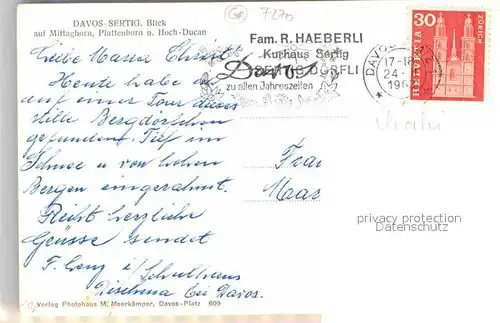 DAVOS-SERTIG. Blick
auf Mittaghorn, Plattenhorn u. Hoch-Ducan
GR 7270
Fam. R. HAEBERLI
Kurhaus Sertig
SERTIG DÖRFLI
Davos
zu allen Jahreszeiten
DAVOS
17-18
24.
196
30
HELVETIA
ZÜRICH
Liebe Maria Christ
Heute habe ich
auf einer Tour dieses
stille Bergdörfchen
gefunden. Tief im
Schnee u von hohen
Bergen eingerahmt.
Recht herzliche
Grüsse sendet
F. Lenz i/ Schulhaus
bei Davos.
Frau
Maar
privacy protection
Datenschutz
Verlag Photohaus M. Meerkämper, Davos-Platz 609